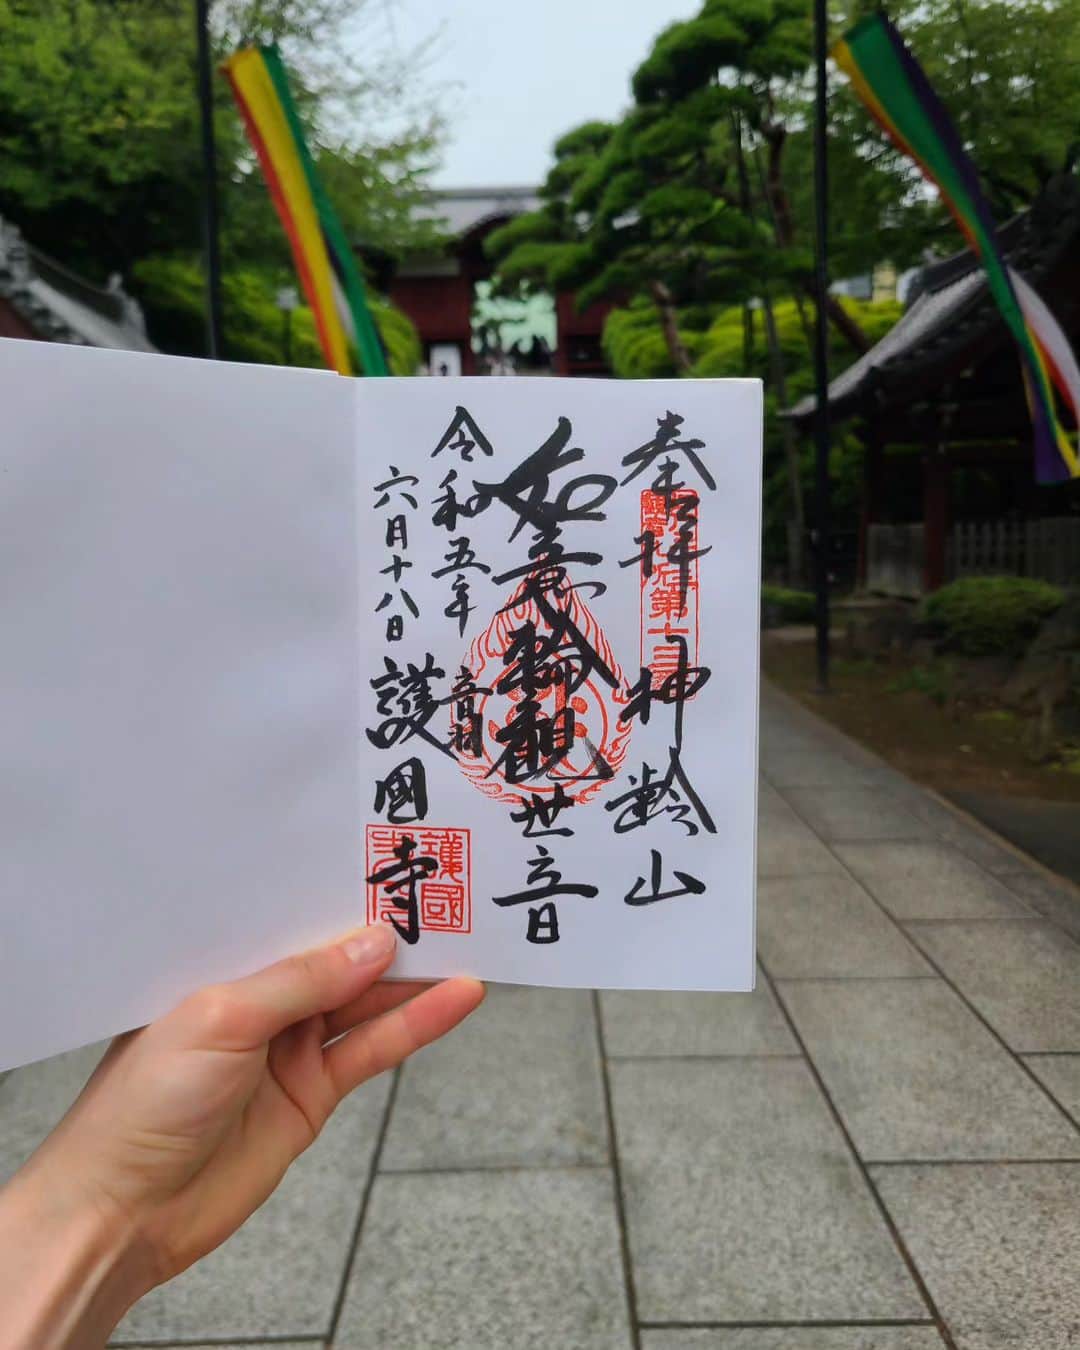 奉拝 神齢山
第十三
如意輪観世音
令和五年
六月十八日
音羽
護國寺
護國